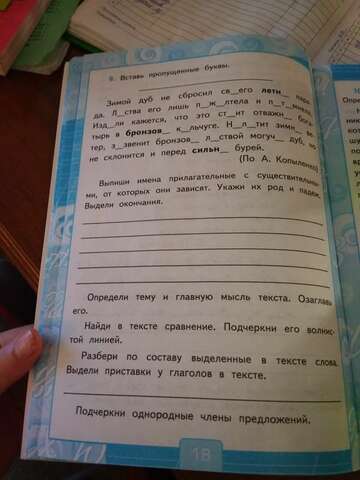 9. Вставь пропущенные буквы.
Зимой дуб не сбросил св__его летн__ наря-
да. Л__ства его лишь п__ж__лтела и п__т__мнела.
Изд__ли кажется, что это ст__ит отважн__ бога-
тырь в бронзов__ к__льчуге. Н__л__тит зимн__ ве-
тер, з__звенит бронзов__ л__ствой могуч__ дуб, но
не склонится и перед сильн__ бурей.
(По А. Копыленко)
Выпиши имена прилагательные с существительны-
ми, от которых они зависят. Укажи их род и падеж.
Выдели окончания.
Определи тему и главную мысль текста. Озаглавь
его.
Найди в тексте сравнение. Подчеркни его волнис-
той линией.
Разбери по составу выделенные в тексте слова.
Выдели приставки у глаголов в тексте.
Подчеркни однородные члены предложений.
18